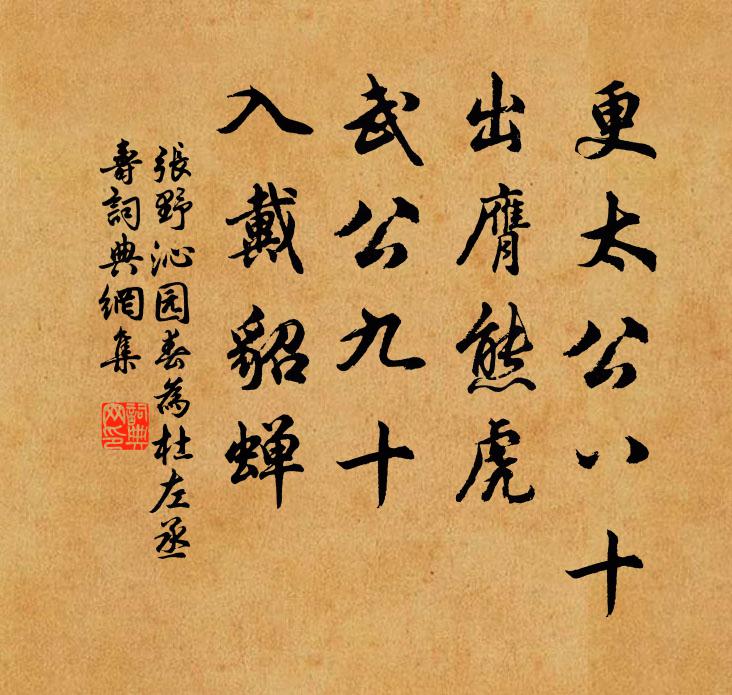 更太公八十
出膺熊虎
武公九十
入戴貂蝉
張野沁园春為杜左丞
壽詞典網集
詞典
網印